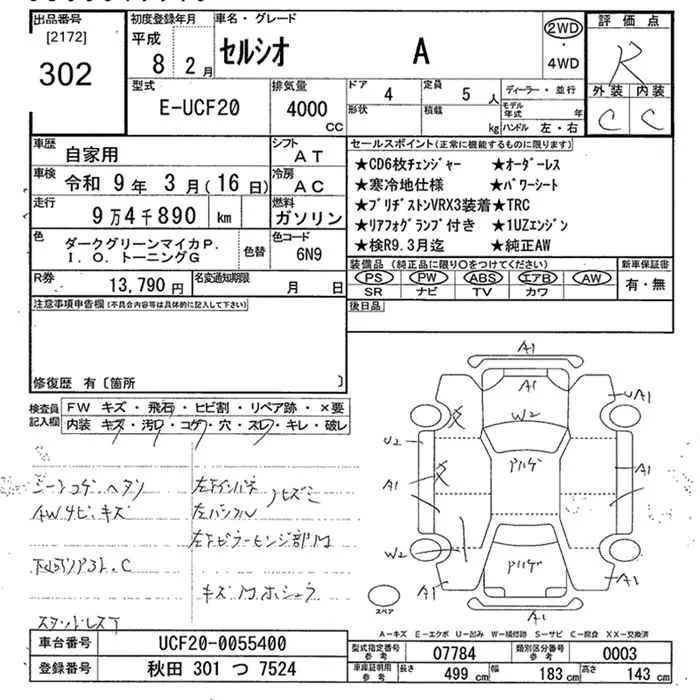 出品番号 初度登録年月 車名・グレード 評価点
[2172]
302
平成
8 2月
セルシオ A
2WD
・
4WD
R
型式 排気量 ドア 4 定員 5人 ディーラー・並行 外装 内装
E-UCF20 4000 CC
形状 積載 kg モデル年式 年
ハンドル 左・右
C C
車歴 自家用 シフト AT
車検 令和 9年 3月(16日) 冷房 AC
走行 9万4千890 km 燃料 ガソリン
色 ダークグリーンマイカP.
I.O.トーニングG
色替 色コード 6N9
R券 13,790円 名変通知期限 月 日
セールスポイント(正常に機能するものに限ります)
★CD6枚チェンジャー ★オーダーレス
★寒冷地仕様 ★パワーシート
★ブリヂストンVRX3装着 ★TRC
★リアフォグランプ付き ★1UZエンジン
★検R9.3月迄 ★純正AW
装備品(純正品に限り○をつけてください) 新車保証書
PS PW ABS エアB AW
SR ナビ TV カワ
有・無
後日品
注意事項申告欄(不具合内容等は具体的に記入して下さい)
修復歴 有〔箇所 〕
検査員記入欄
FW キズ・飛石・ヒビ割・リペア跡・×要
内装 キズ・汚れ・コゲ・穴・スレ・キレ・破レ
シートコゲ、ヘタリ
AWサビ、キズ
左リインパネ
左バックパル
左Bピラーヒンジ部
キズ
A1
A1
UA1
W2
U2
アルゲ
A1
A1
W2
アルゲ
A1
A1
A1
スペア
A-キズ E-エクボ U-凹み W-補修跡 S-サビ C-腐食 XX-交換済
車台番号 UCF20-0055400
登録番号 秋田 301 つ 7524
型式指定番号 参考 07784 類別区分番号 参考 0003
車庫証明用 参考 長さ 499 cm 幅 183 cm 高さ 143 cm